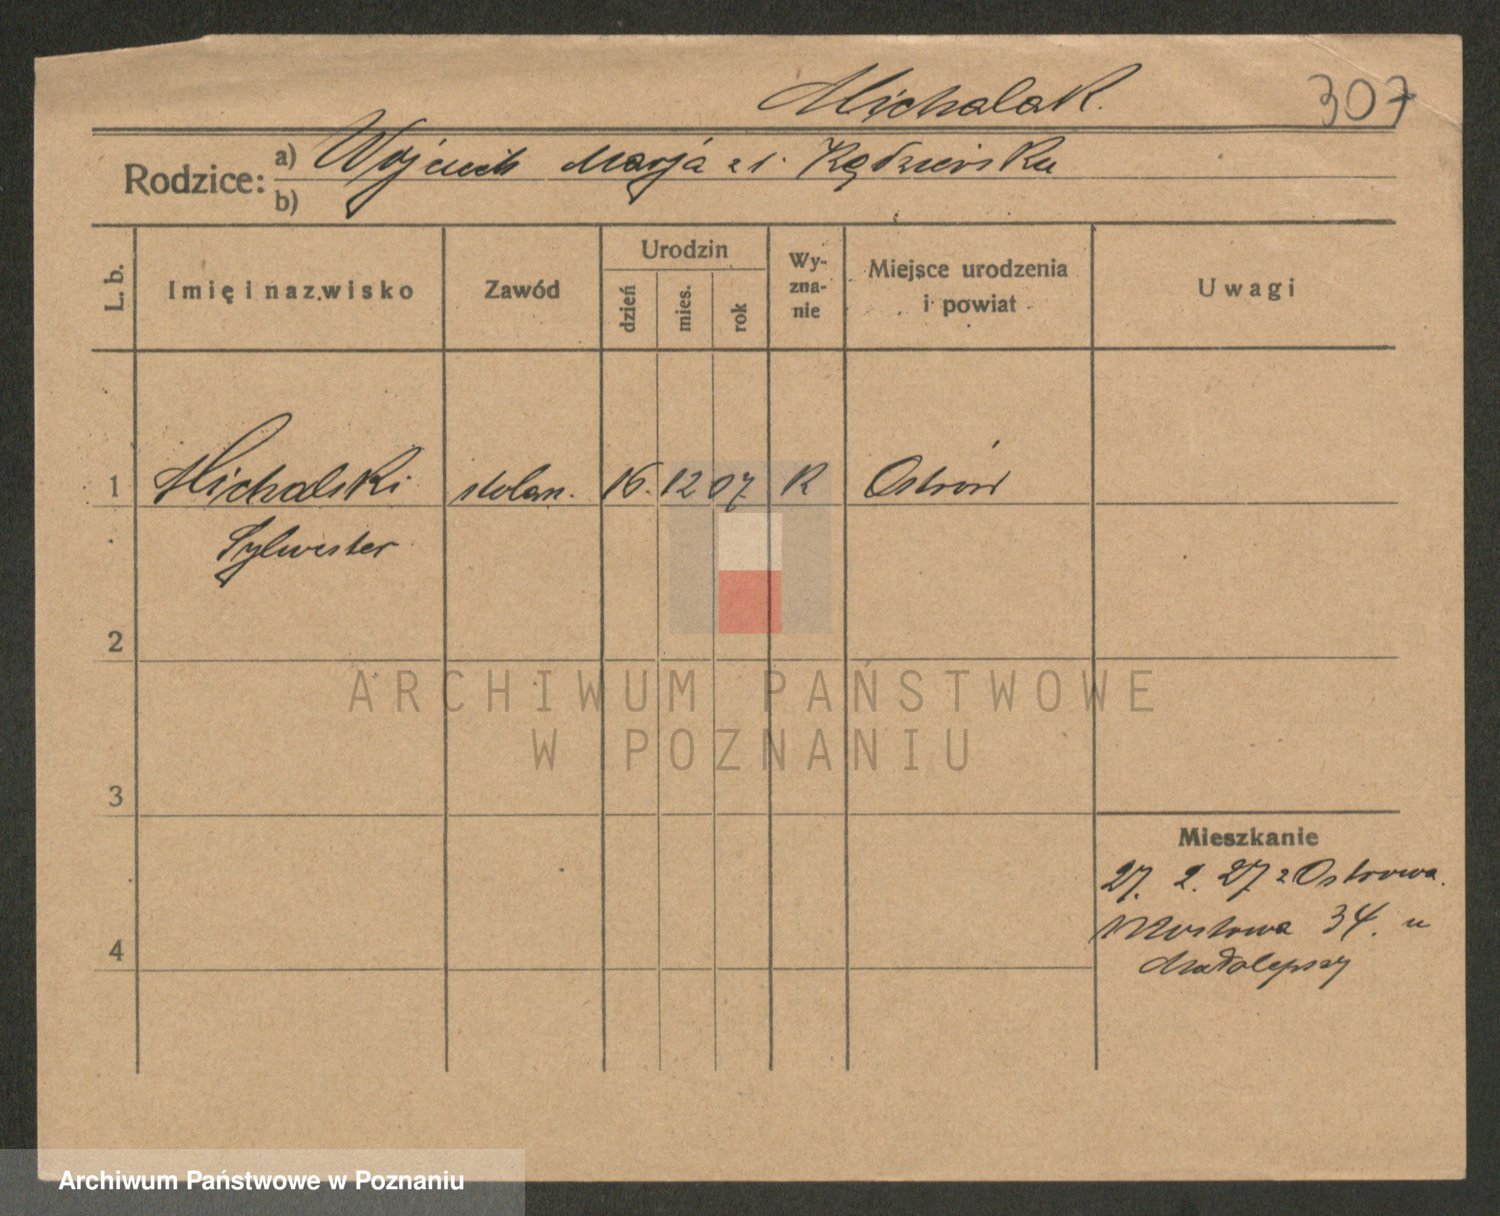 Michalak.
307
Rodzice:
a) Wojciech Marja z d. Kędzierska
b)
L. b.
Imię i nazwisko
Zawód
Urodzin
dzień
mies.
rok
Wy-
zna-
nie
Miejsce urodzenia
i powiat
Uwagi
1 Michalski stolarz. 16. 12 07 R Ostrów
Sylwester
2
ARCHIWUM PAŃSTWOWE
W POZNANIU
3
Mieszkanie
27. 2. 27 z Ostrowa.
Mostowa 34. u
4
Małolepszy
Archiwum Państwowe w Poznaniu